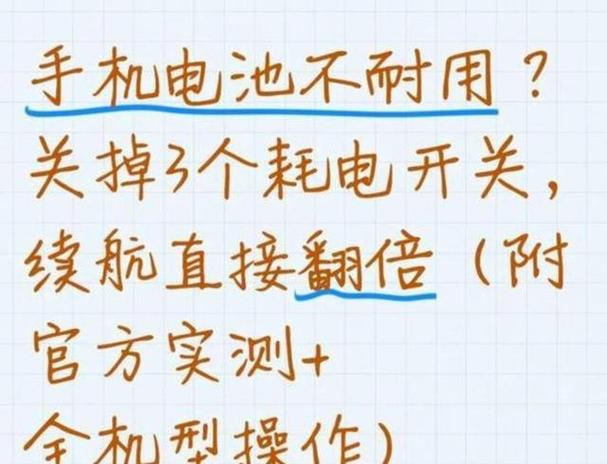 手机电池不耐用？
关掉3个耗电开关，
续航直接翻倍（附
官方实测+
全机型操作）